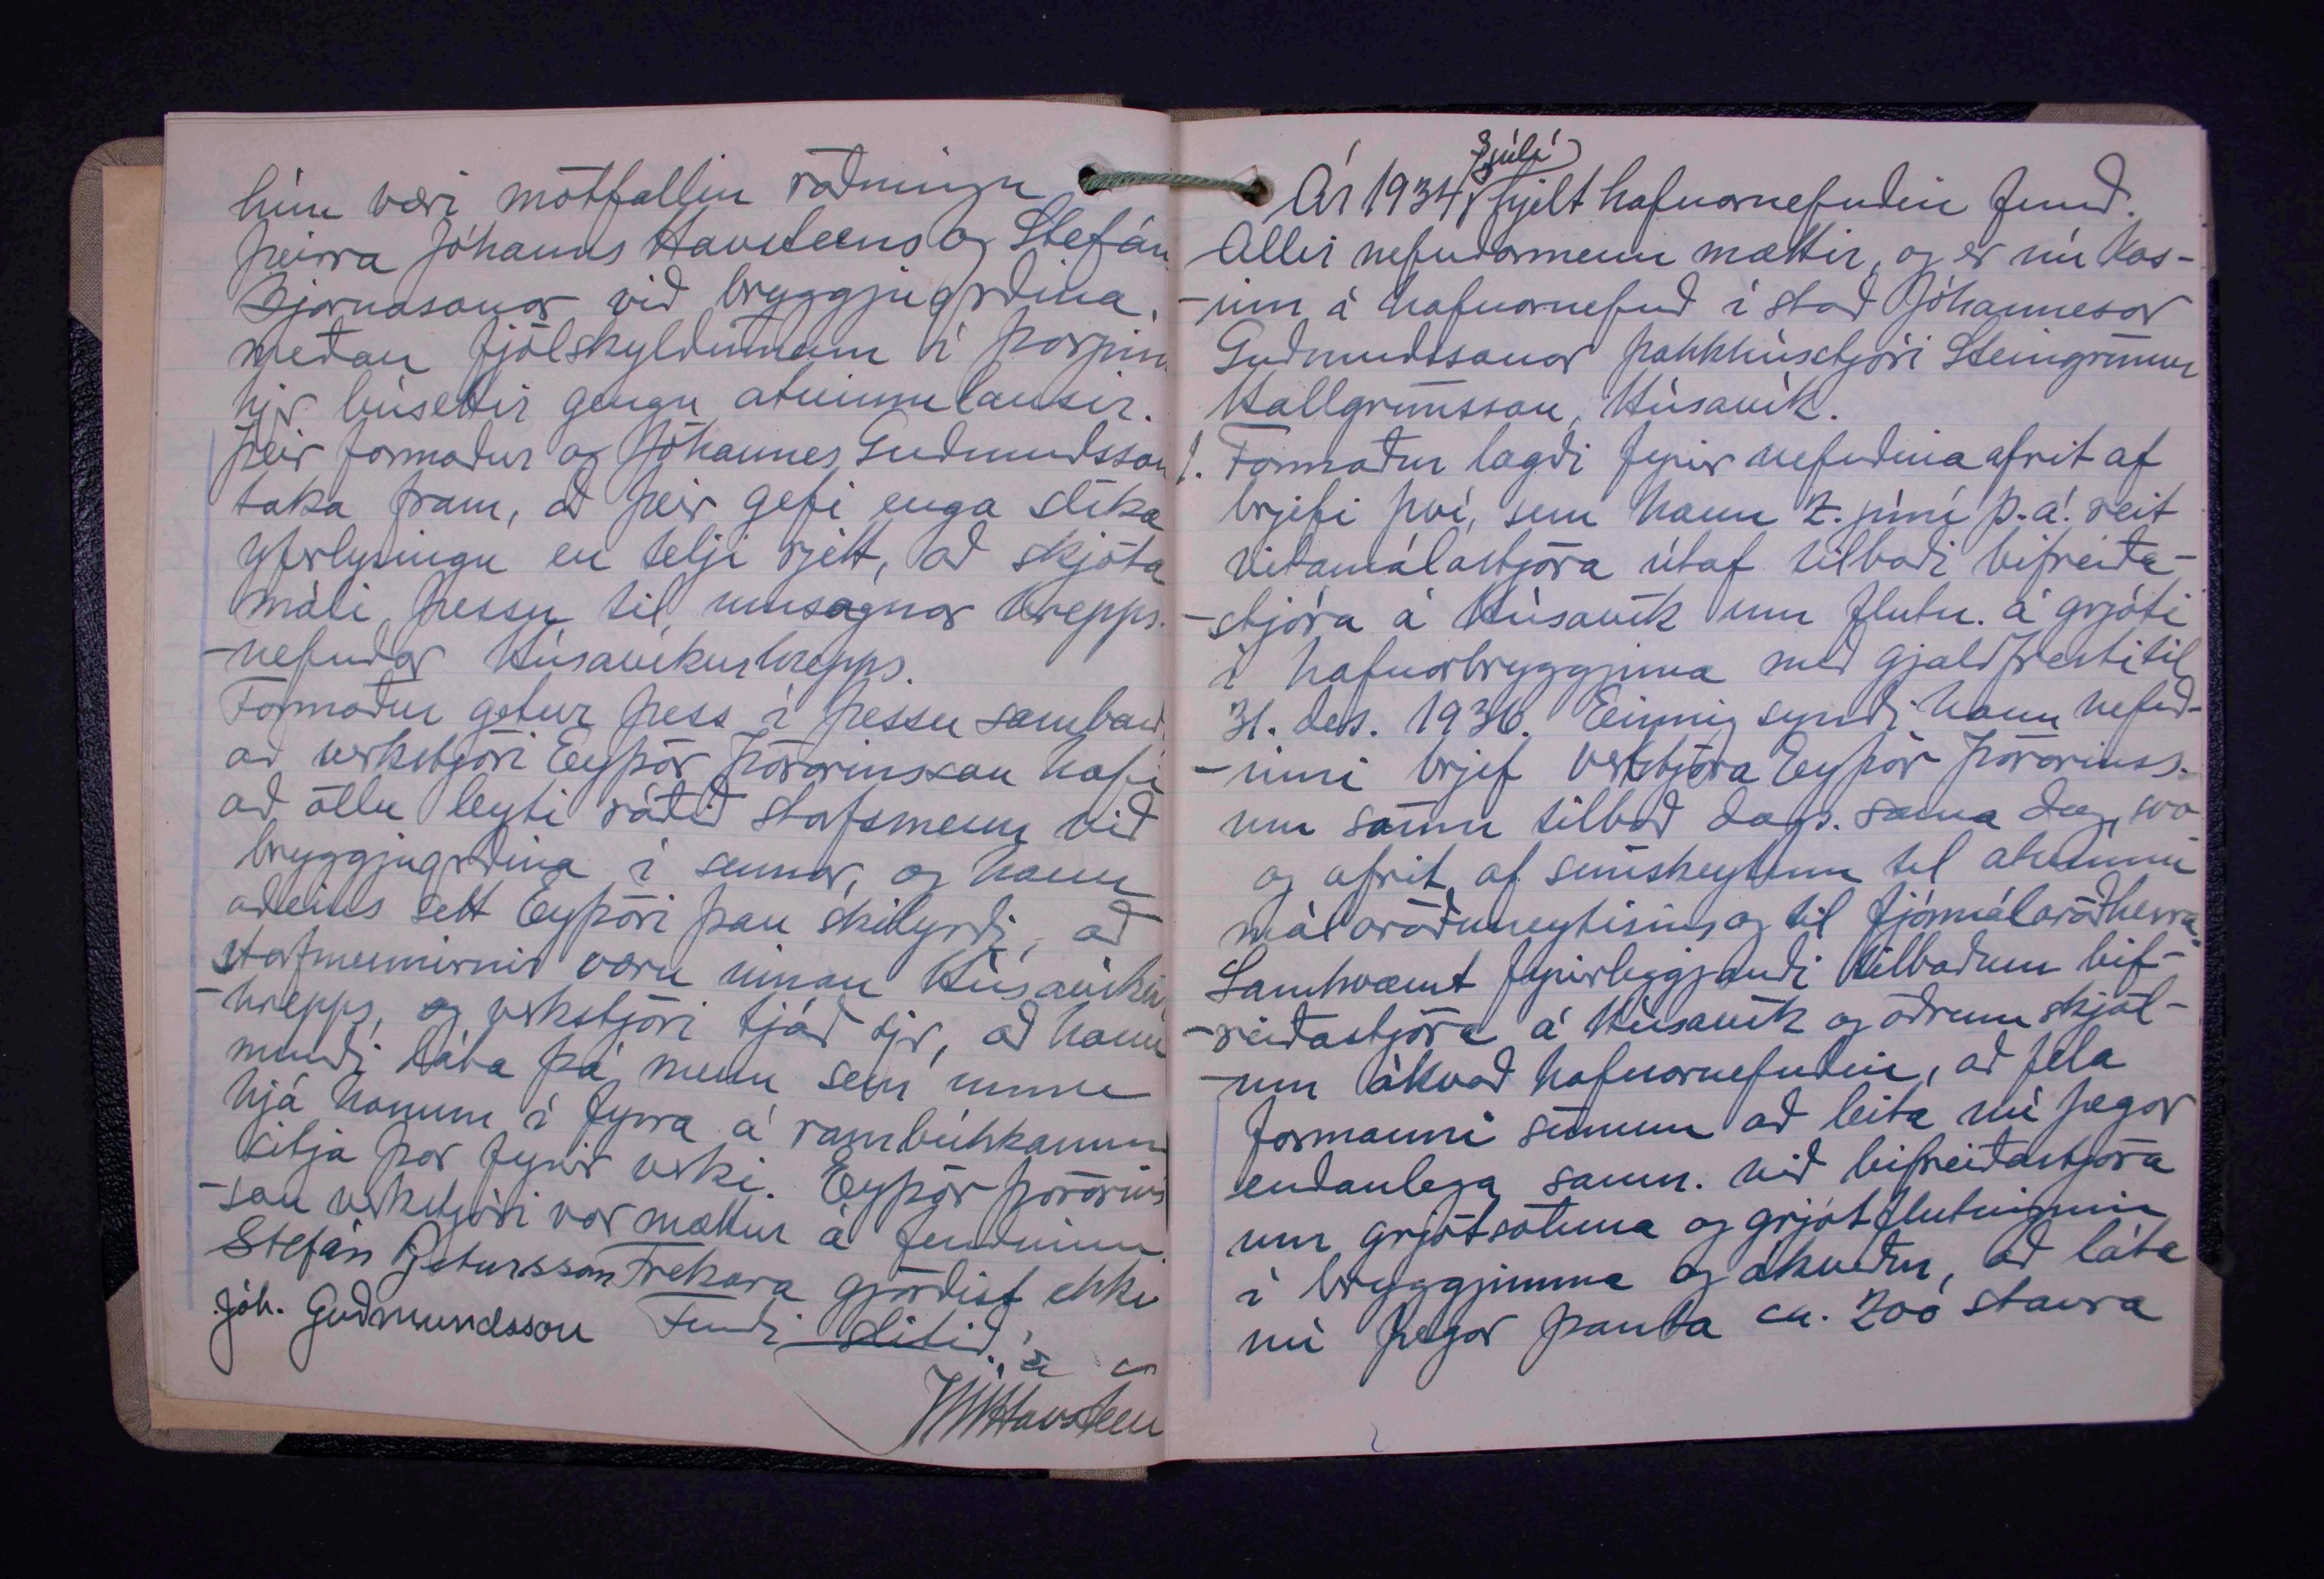 hún væri mótfallin ráðningu
þeirra Jóhanns Havsteens og Stefán
Bjarnasonar við bryggjugjörðina,
meðan fjölskyldumenn í þorpinu
hjer búsettir gengu atvinnulausir.
Þeir formaður og Jóhannes Guðmundsson
taka fram, að þeir gefi enga slíka
yfirlýsingu en telji rjett, að skjóta
máli þessu til umsagnar hrepps-
-nefndar Húsavíkurhrepps.
Formaður getur þess í þessu samband
að verkstjóri Eyþór Þórarinsson hafi
að öllu leyti ráðið starfsmenn við
bryggjugjörðina í sumar, og hann
aðeins sett Eyþóri þau skilyrði, að
starfmennirnir væru innan Húsavíkur
-hrepps, og verkstjóri tjáð sjer, að hann
mundi láta þá menn sem unnu
hjá honum í fyrra á rambúkkanum
sitja þar fyrir verki. Eyþór Þórarins
-son verkstjóri var mættur á fundinum
Stefán Pjetursson Frekara gjörðist ekki
Jóh. Guðmundsson Fundi slitið.
JHavsteen
3 júlí
Ár 1934, hjelt hafnarnefndin fund.
Allir nefndarmenn mættir, og er nú kos-
-inn á hafnarnefnd í stað Jóhannesar
Guðmundssonar pakkhússtjóri Steingrímur
Hallgrímsson, Húsavík.
1. Formaður lagði fyrir nefndina afrit af
brjefi því, sem hann 2. júní þ.á. reit
vitamálastjóra útaf tilboði bifreiða-
-stjóra á Húsavík um flutn. á grjóti
í hafnarbryggjuna með gjaldfresti til
31. des. 1936. Einnig sýndi hann nefnd-
-inni brjef verkstjóra Eyþór Þórarinss.
um sama tilboð dags. sama dag, svo
og afrit af símskeytum til atvinnu
málaráðuneytisins og til fjármálaráðherra.
Samkvæmt fyrirliggjandi tilboðum bif-
-reiðastjóra á Húsavík og öðrum skjöl-
-um ákvað hafnarnefndin, að fela
formanni sínum að leita nú þegar
endanlega samn. við bifreiðastjóra
um grjótsátuna og grjótflutninginn
í bryggjunna og ákveður, að láta
nú þegar panta ca. 200 staura